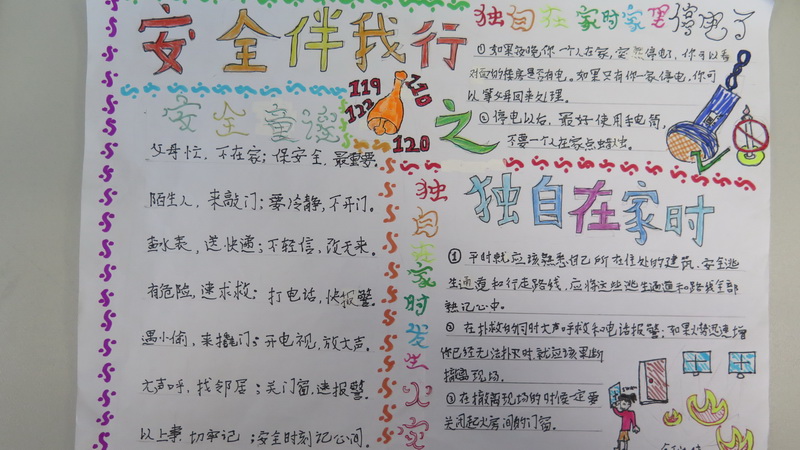 安全伴我行
之
119
122
110
120
安全童谣
父母忙,不在家;保安全,最重要。
陌生人,来敲门;要冷静,不开门。
查水表,送快递;不轻信,改天来。
有危险,速求救;打电话,快报警。
遇小偷,来撬门;开电视,放大声。
大声呼,找邻居;关门窗,速报警。
以上事,切牢记;安全时刻记心间。
独自在家时家里停电了
①如果夜晚你一个人在家,突然停电了,你可以看
对面的楼房是否有电。如果只有你一家停电,你可
以等父母回来处理。
②停电以后,最好使用手电筒,
不要一个人在家点蜡烛。
独自在家时发生火灾
独自在家时
①平时就应该熟悉自己所在住处的建筑、安全逃
生通道和行走路线,应将这些逃生通道和路线全部
熟记心中。
②在扑救的同时大声呼救和电话报警,如果火势迅速增
你已经无法扑灭时,就应该果断
撤离现场。
③在撤离现场的时候一定要
关闭起火房间的门窗。